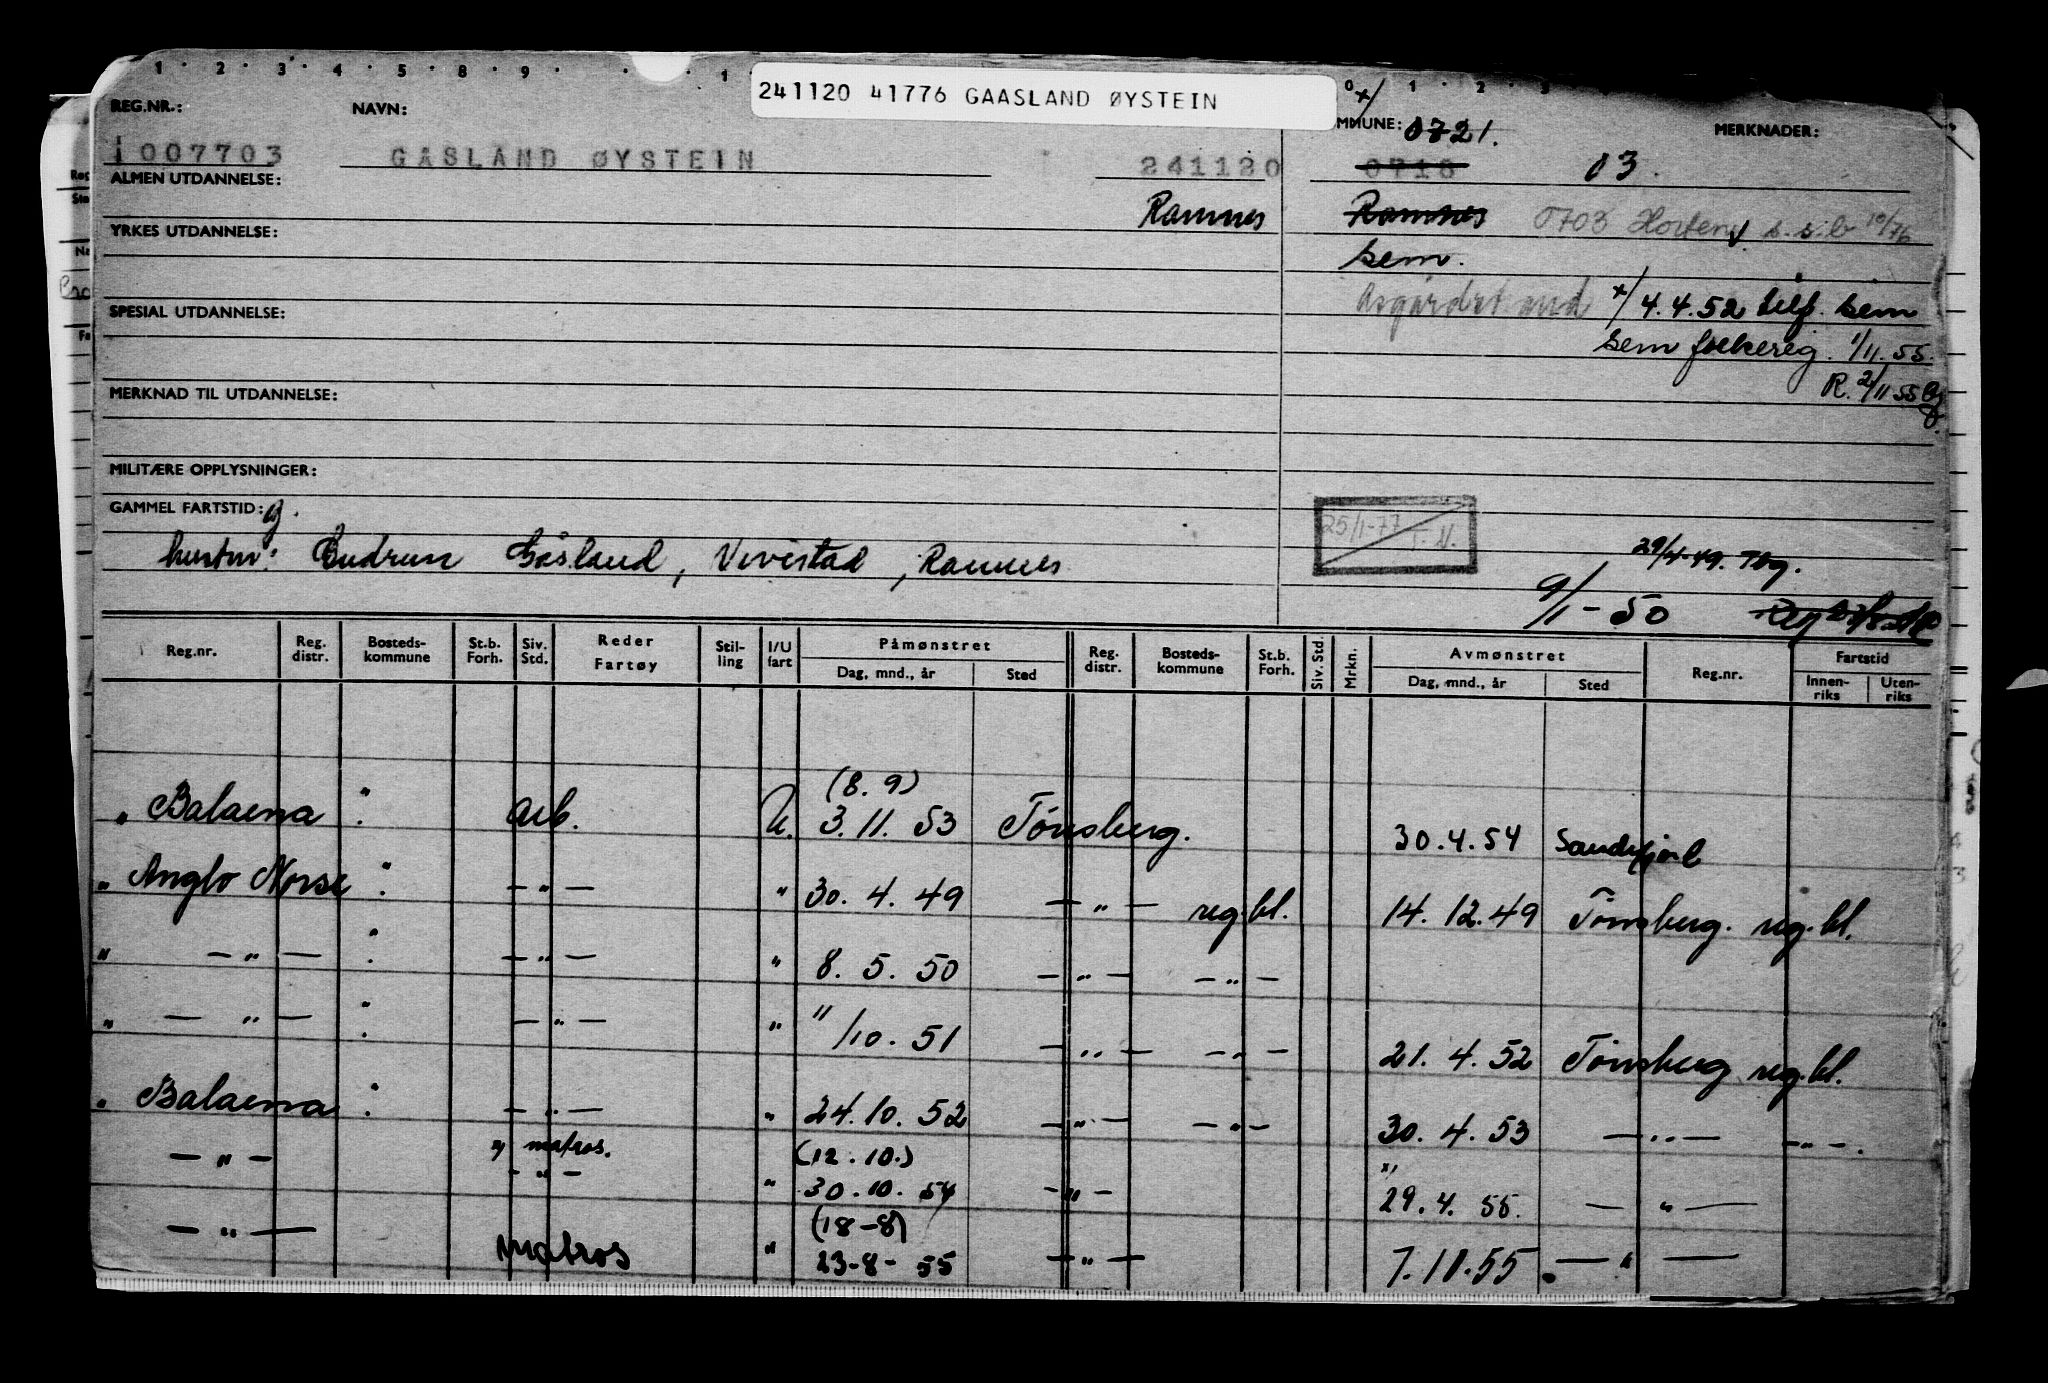 241120 41776 GAASLAND ØYSTEIN
REG.NR.: NAVN: MMUNE: 0721. MERKNADER:
1007703 GASLAND ØYSTEIN 241120 0718 03.
ALMEN UTDANNELSE:
Ramnes Ramnes 0703 Horten s.s.b 10/76
YRKES UTDANNELSE:
Sem.
x/ 4.4.52 telf. Sem
SPESIAL UTDANNELSE:
Sem folkereg. 1/11.55.
R. 2/11 55
MERKNAD TIL UTDANNELSE:
MILITÆRE OPPLYSNINGER:
GAMMEL FARTSTID: g.
25/1-77 T.N.
hustru: Gudrun Gåsland, Vivestad, Ramnes
29/4-49. Tbg.
9/1-50
Reg.nr. Reg. distr. Bosteds-kommune St.b. Forh. Siv. Std. Reder Fartøy Stil-ling I/U fart Påmønstret Dag, mnd., år Sted Reg. distr. Bosteds-kommune St.b. Forh. Siv. Std Mrkn. Avmønstret Dag, mnd., år Sted Reg.nr. Fartstid Innen-riks Uten-riks
(8.9)
" Balaena " . arb. U. 3.11.53 Tönsberg. 30.4.54 Sandefjord
" Anglo Norse " . — " — " 30.4.49 — " — reg.bl. 14.12.49 Tönsberg. reg.bl.
" — " — " . — " — " 8.5.50 — " — — " —
" — " — " . — " — " "/10.51 — " — — " — 21.4.52 Tönsberg reg.bl.
" Balaena " . — " — " 24.10.52 — " — — " — 30.4.53 — " — — " — .
— " — matros. (12.10.)
— " — " 30.10.54 — " — 29.4.55. — " —
— " — (18-8)
matros " 23-8-55 — " — 7.10.55. — " —